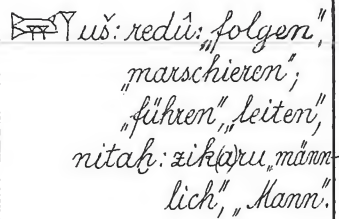 uš: redû: „folgen",
„marschieren";
„führen", „leiten",
nitaḫ: zik(a)ru „männ-
lich", „Mann".